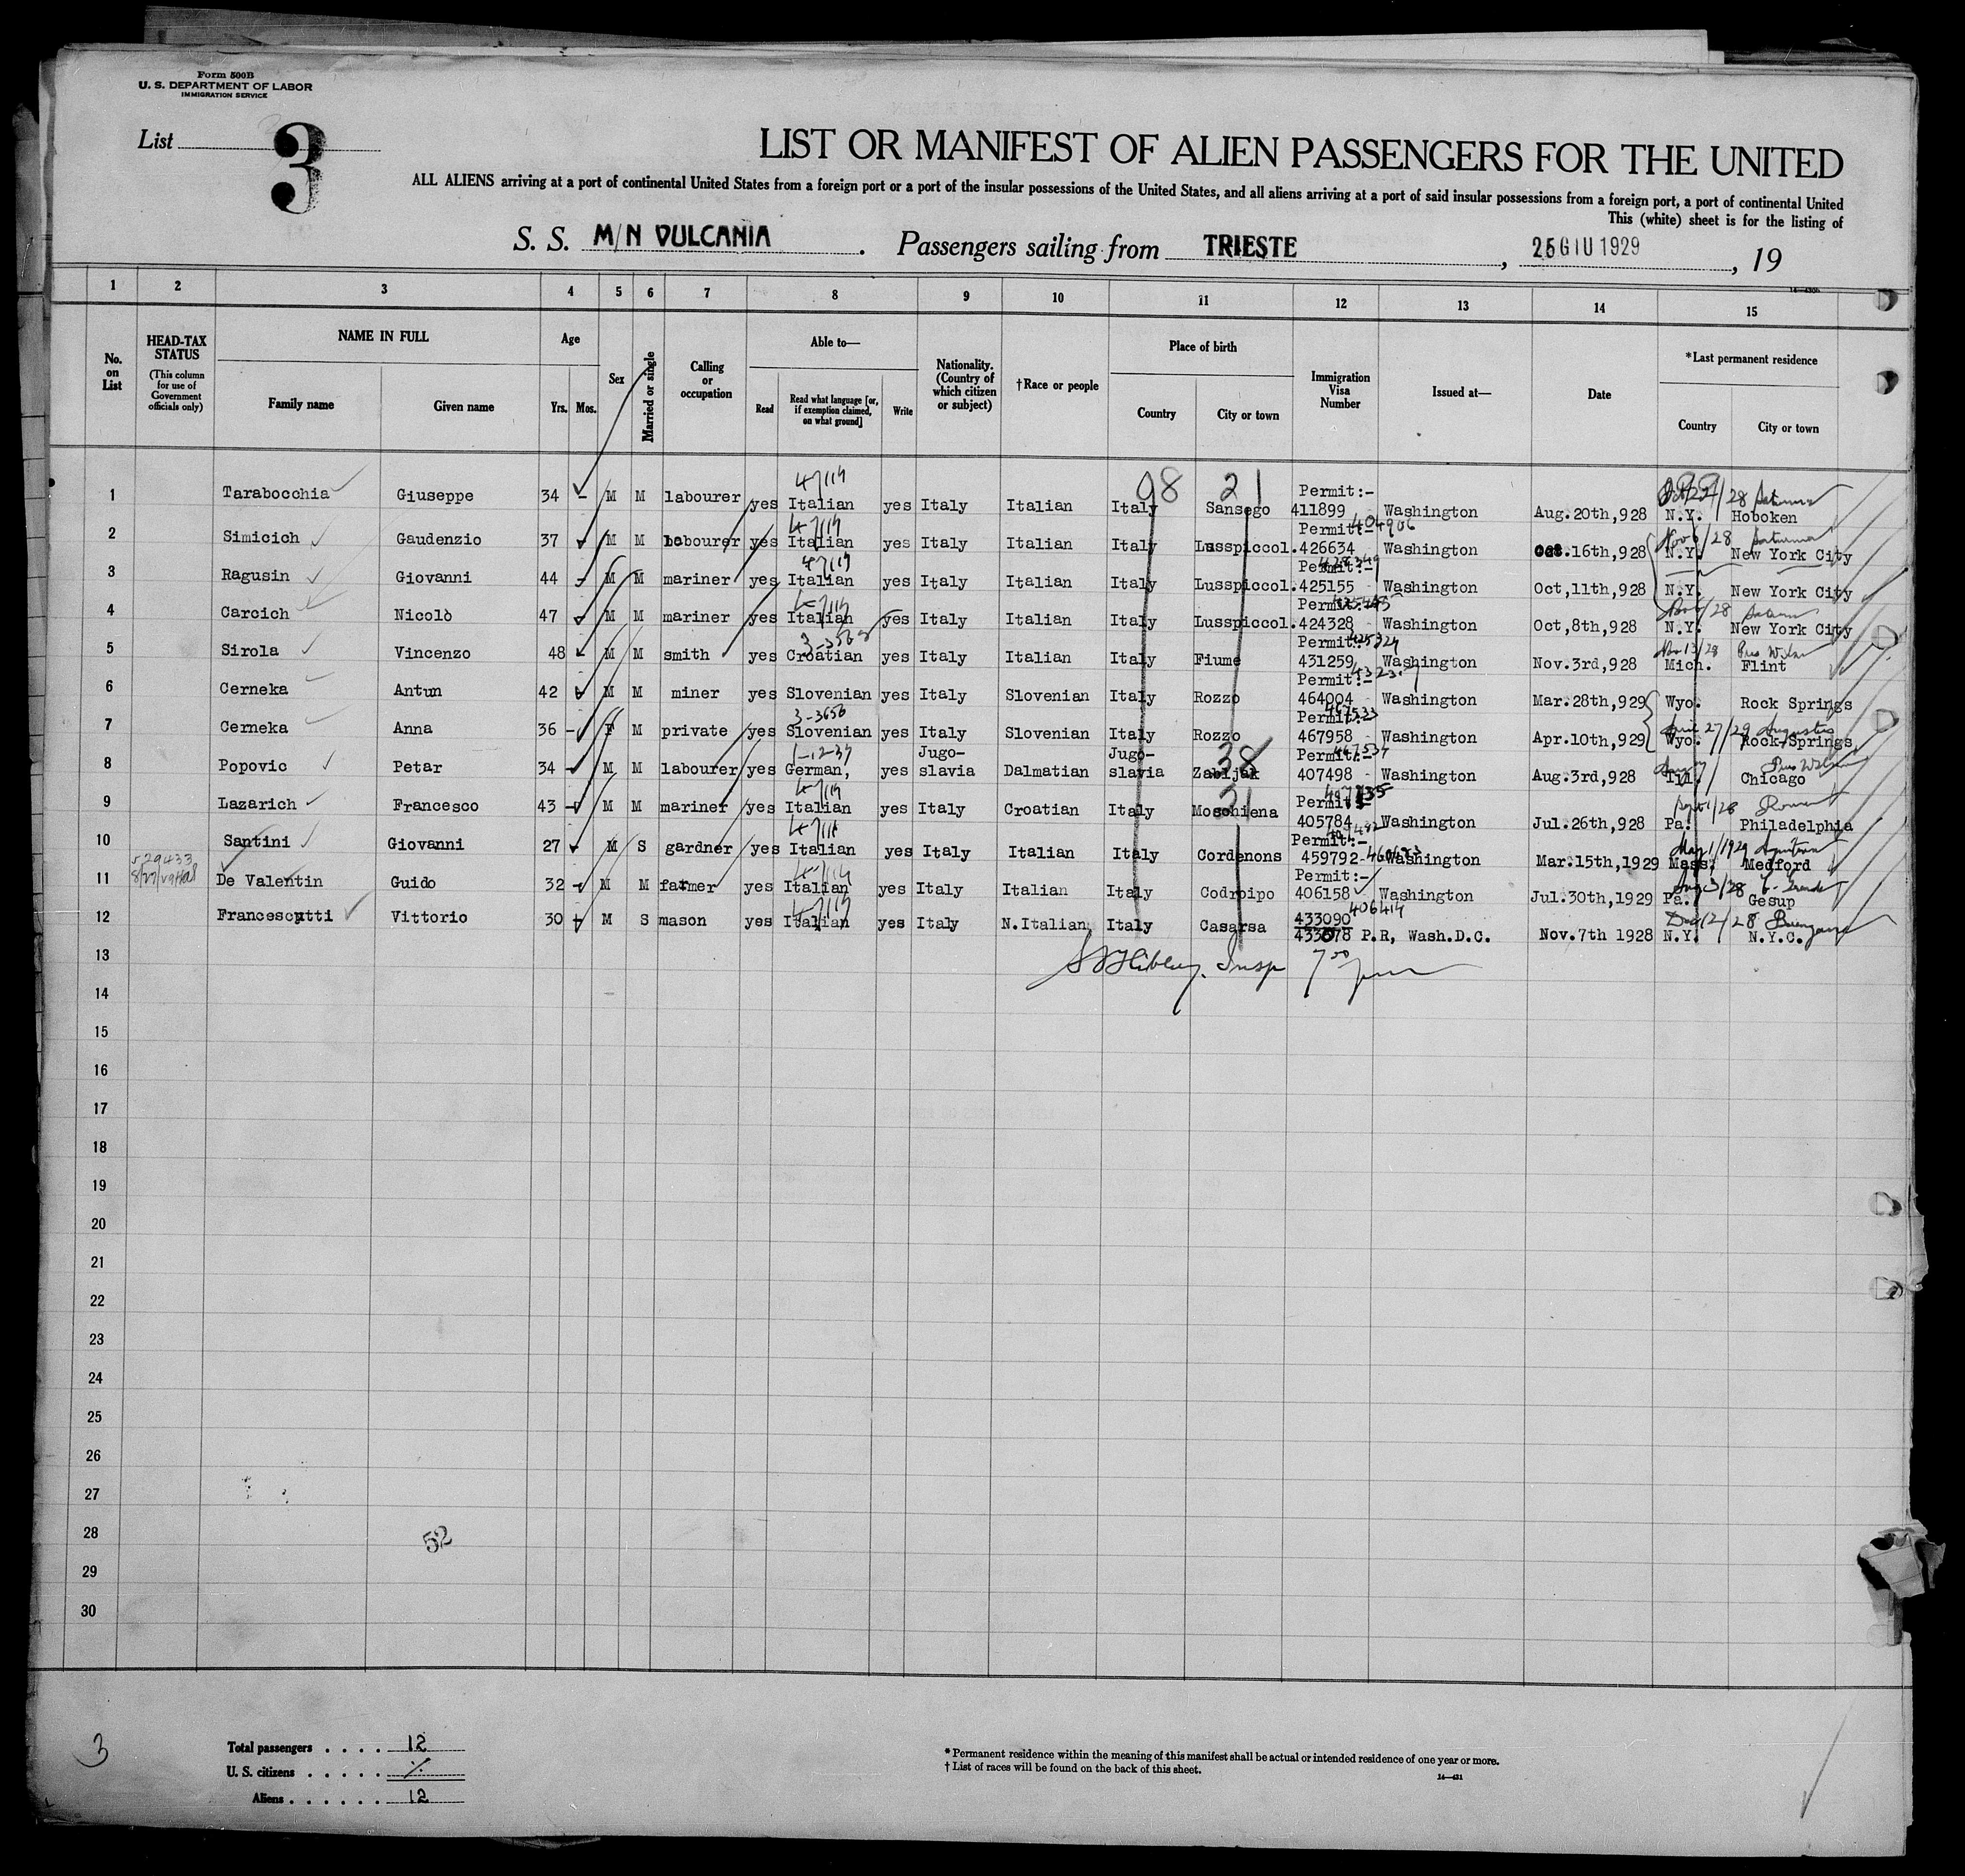 Form 500B
U. S. DEPARTMENT OF LABOR
IMMIGRATION SERVICE
List 3
LIST OR MANIFEST OF ALIEN PASSENGERS FOR THE UNITED
ALL ALIENS arriving at a port of continental United States from a foreign port or a port of the insular possessions of the United States, and all aliens arriving at a port of said insular possessions from a foreign port, a port of continental United
This (white) sheet is for the listing of
S. S. M/N VULCANIA . Passengers sailing from TRIESTE , 26 GIU 1929 , 19
1 2 3 4 5 6 7 8 9 10 11 12 13 14 15
No. on List
HEAD-TAX STATUS (This column for use of Government officials only)
NAME IN FULL
Family name Given name
Age
Yrs. Mos.
Sex
Married or single
Calling or occupation
Able to—
Read Read what language [or, if exemption claimed, on what ground] Write
Nationality. (Country of which citizen or subject)
† Race or people
Place of birth
Country City or town
Immigration Visa Number
Issued at—
Date
* Last permanent residence
Country City or town
98 21
1 Tarabocchia Giuseppe 34 - M M labourer yes Italian yes Italy Italian Italy Sansego Permit:- 411899 Washington Aug.20th,928 N.Y. Hoboken
2 Simicich Gaudenzio 37 M M labourer yes Italian yes Italy Italian Italy Lusspiccol. Permit:- 404906 426634 Washington Oct.16th,928 N.Y. New York City
3 Ragusin Giovanni 44 - M M mariner yes Italian yes Italy Italian Italy Lusspiccol. Permit:- 425155 Washington Oct,11th,928 N.Y. New York City
4 Carcich Nicolò 47 M M mariner yes Italian yes Italy Italian Italy Lusspiccol. 424328 Washington Oct,8th,928 N.Y. New York City
5 Sirola Vincenzo 48 M M smith yes Croatian yes Italy Italian Italy Fiume Permit:- 431259 Washington Nov.3rd,928 Mich. Flint
6 Cerneka Antun 42 M M miner yes Slovenian yes Italy Slovenian Italy Rozzo Permit:- 464004 Washington Mar.28th,929 Wyo. Rock Springs
7 Cerneka Anna 36 - F M private yes Slovenian yes Italy Slovenian Italy Rozzo Permit:- 467958 Washington Apr.10th,929 Wyo. Rock Springs
8 Popovic Petar 34 M M labourer yes German, yes Jugo-slavia Dalmatian Jugo-slavia Zabljak 38 Permit:- 407498 Washington Aug.3rd,928 Ill. Chicago
9 Lazarich Francesco 43 M M mariner yes Italian yes Italy Croatian Italy Moschiena Permit:- 405784 Washington Jul.26th,928 Pa. Philadelphia
10 Santini Giovanni 27 M S gardner yes Italian yes Italy Italian Italy Cordenons Permit:- 459792 Washington Mar.15th,1929 Mass. Medford
11 De Valentin Guido 32 M M farmer yes Italian yes Italy Italian Italy Codroipo Permit:- 406158 Washington Jul.30th,1929 Pa. Gesup
12 Francescutti Vittorio 30 M S mason yes Italian yes Italy N.Italian Italy Casarsa 406414 433090 433078 P.R, Wash.D.C. Nov.7th 1928 N.Y. N.Y.C.
13
14
15
16
17
18
19
20
21
22
23
24
25
26
27
28
52
29
30
3
Total passengers . . . . 12
U. S. citizens . . . . .
Aliens . . . . . . 12
* Permanent residence within the meaning of this manifest shall be actual or intended residence of one year or more.
† List of races will be found on the back of this sheet.
14—431